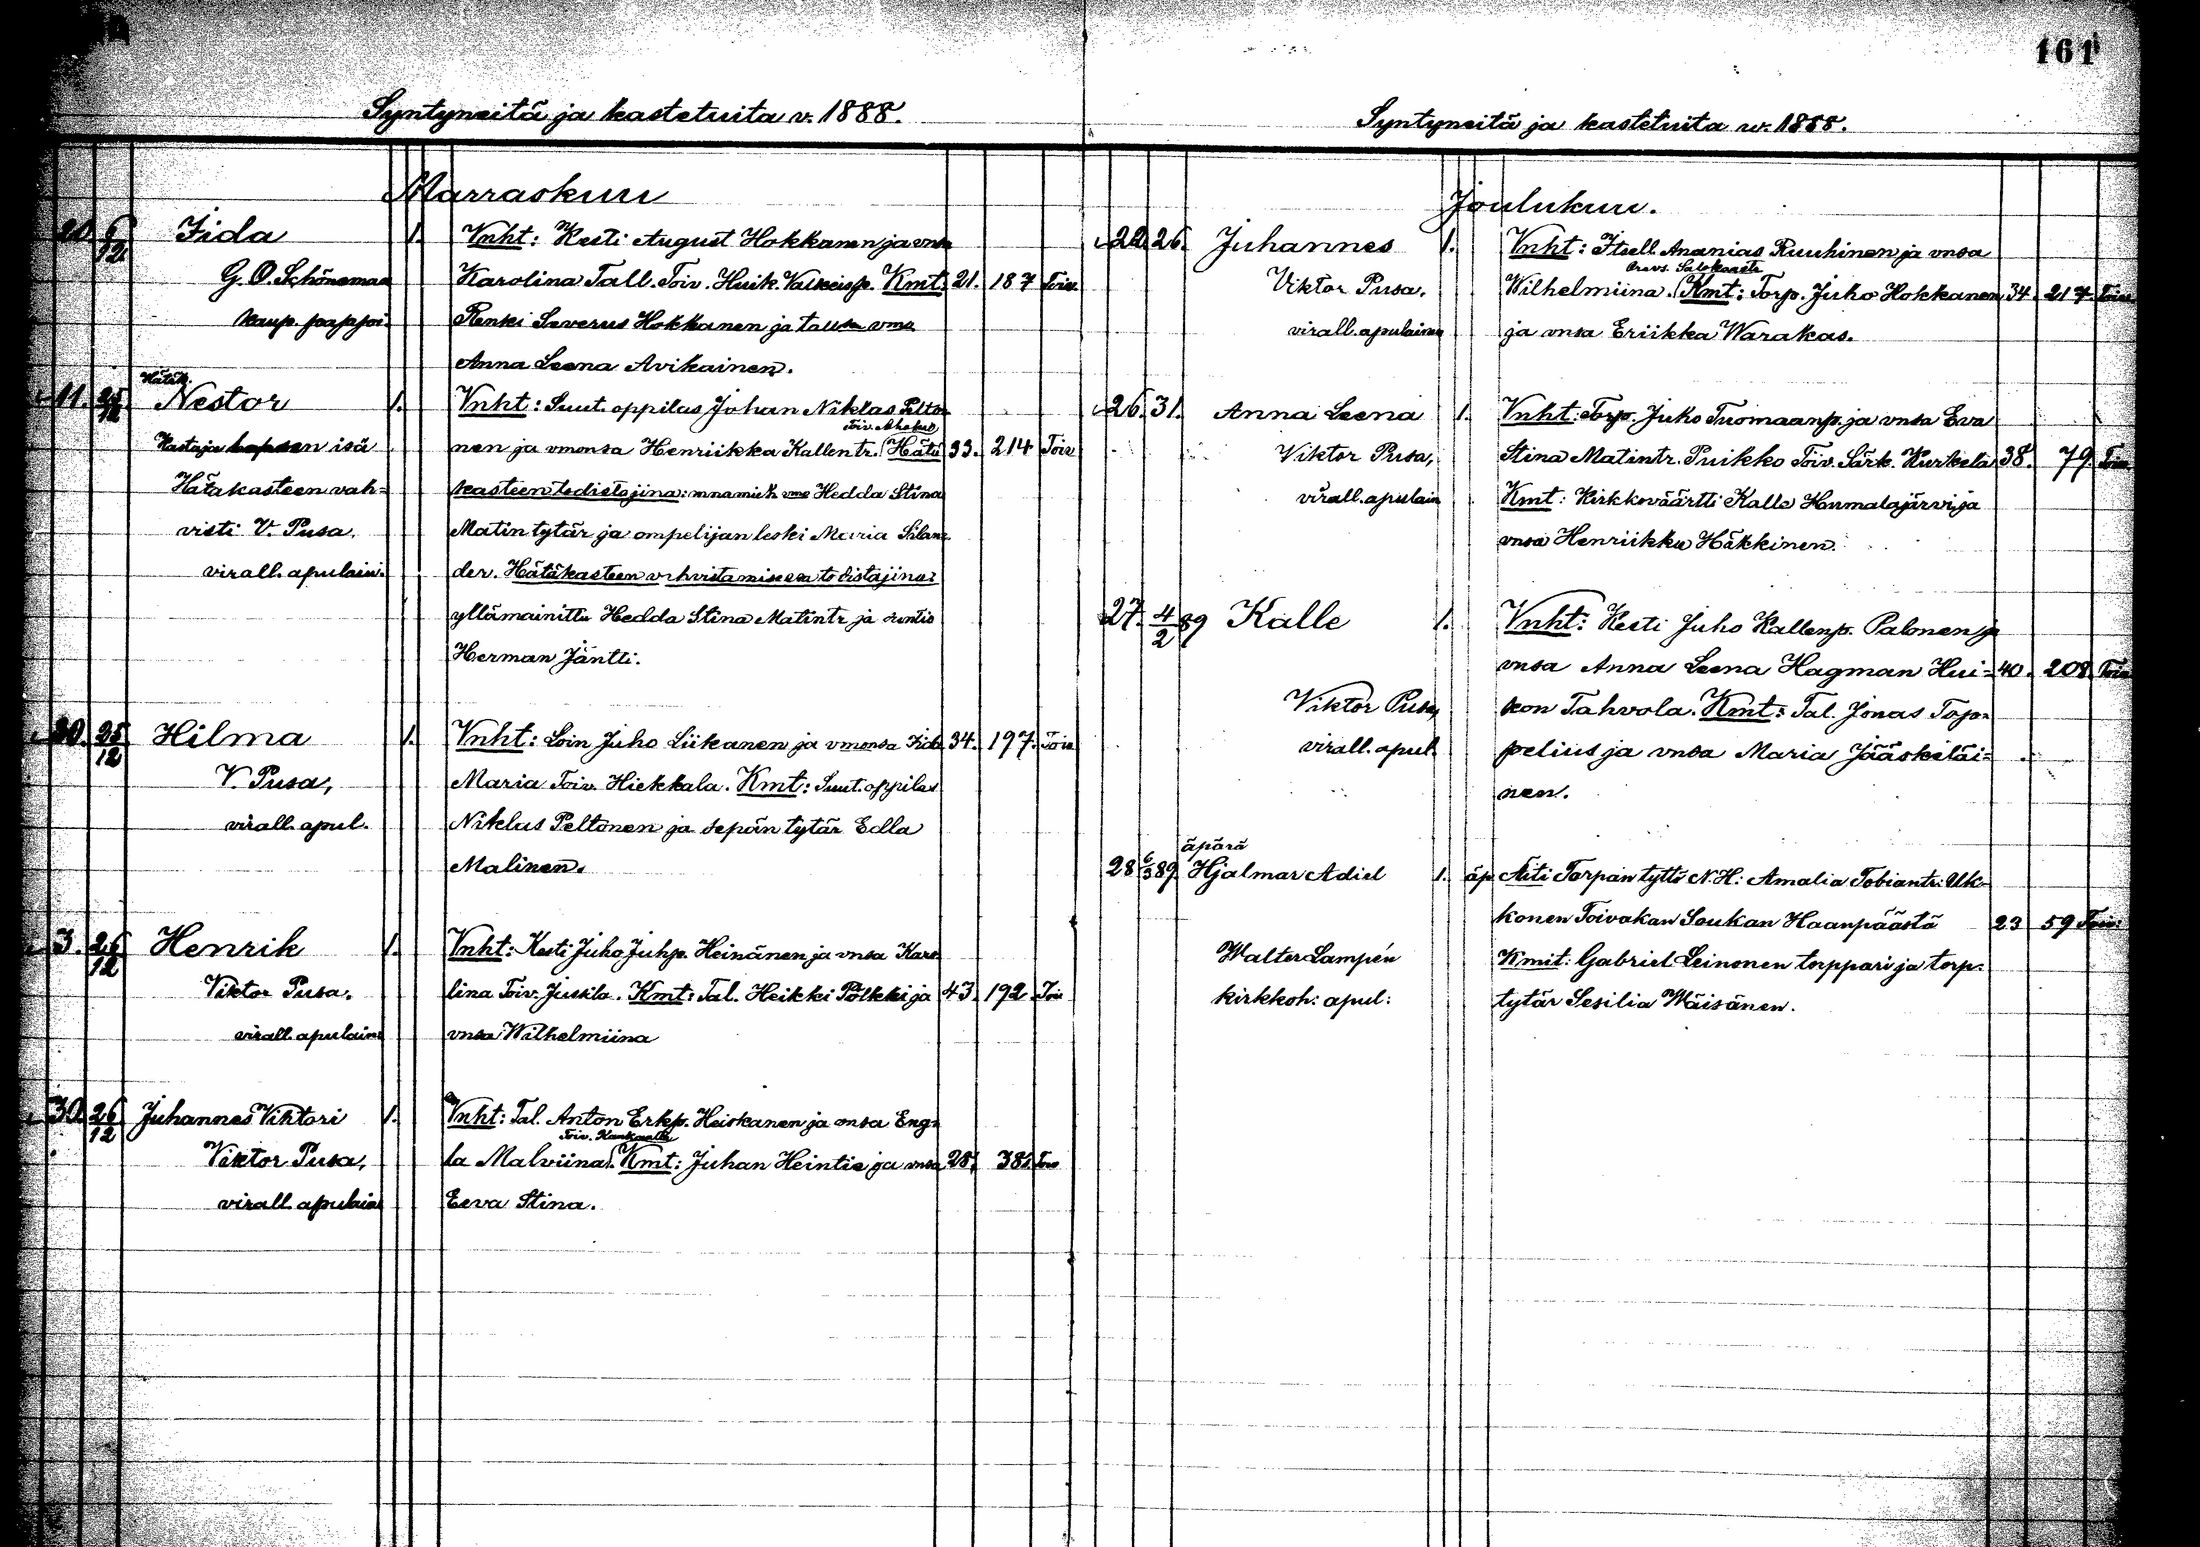 161
Syntyneitä ja kastetuita v. 1888.
Marraskuu
20. 6/12 Iida 1. Vnht: Kesti August Hokkanen ja vnsa
G. O. Schöneman Karolina Tall. Toiv. Huik. Valkeisp. Kmt: 21. 187 Toiv.
kaup. pappi. Renki Severus Hokkanen ja vmo
Anna Leena Avikainen.
Hätäk.
11. 25/12 Nestor 1. Vnht: Suut. oppilas Johan Niklas Pelto-
Toiv. Ahola
Kastaja lapsen isä nen ja vmonsa Henriikka Kallentr. Hätä 33. 214 Toiv
Hätäkasteen vah- kasteen todistajina: mnamieh vmo Hedda Stina
visti V. Pusa, Matin tytär ja ompelijan leski Maria Silan-
virall. apulain. der. Hätäkasteen vahvistamisessa todistajina:
yllämainittu Hedda Stina Matintr ja suntio
Herman Jäntti.
30. 25/12 Hilma 1. Vnht: Loin Juho Liikanen ja vmonsa Iida 34. 197. Toiv
V. Pusa, Maria Toiv. Hiekkala. Kmt: Suut. oppilas
virall. apul. Niklas Peltonen ja sepän tytär Edla
Malinen.
3. 26/12 Henrik 1. Vnht: Kesti Juho Juhp. Heinänen ja vnsa Karo
Viktor Pusa, lina Toiv. Juskla. Kmt: Tal. Heikki Pölkki ja 43. 192. Toiv
virall. apulaine vnsa Wilhelmiina
30. 26/12 Juhannes Viktori 1. Vnht: Tal. Anton Erkp. Heiskanen ja vnsa Eng-
Toiv. Kankaalta
Viktor Pusa, la Malviina. Kmt: Juhan Heintie ja vnsa 28. 385 Toiv
virall. apulain Eeva Stina.
Syntyneitä ja kastetuita w. 1888.
Joulukuu.
22. 26. Juhannes 1. Vnht: Itsell. Ananias Ruuhinen ja vnsa
Viktor Pusa, Wilhelmiina. Kmt: Torp. Juho Hokkanen 34. 217. Toiv
virall. apulainen ja vnsa Eriikka Warakas.
26. 31. Anna Leena 1. Vnht: Torp. Juho Tuomaanp. ja vnsa Eva
Viktor Pusa, Stina Matintr. Puikko Toiv. Särk. Kurkela 38. 79. Toiv
virall. apulain Kmt: Kirkkoväärtti Kalle Humalajärvi ja
vnsa Henriikka Häkkinen.
27. 4/2 89 Kalle 1. Vnht: Kesti Juho Kallenp. Palonen ja
vnsa Anna Leena Hagman Hui- 40. 208 Toiv
Viktor Pusa, kon Tahvola. Kmt: Tal. Jonas Top-
virall. apul. pelius ja vnsa Maria Jääskeläi-
nen.
äpärä
28 6/3 89. Hjalmar Adiel 1. äp. Äiti Torpan tyttö N. H: Amalia Tobiantr: Uk-
konen Toivakan Soukan Haanpäästä 23 59 Toiv:
Walter Lampén Kmit: Gabriel Leinonen torppari ja torp.
kirkkoh: apul: tytär Sesilia Wäisänen.